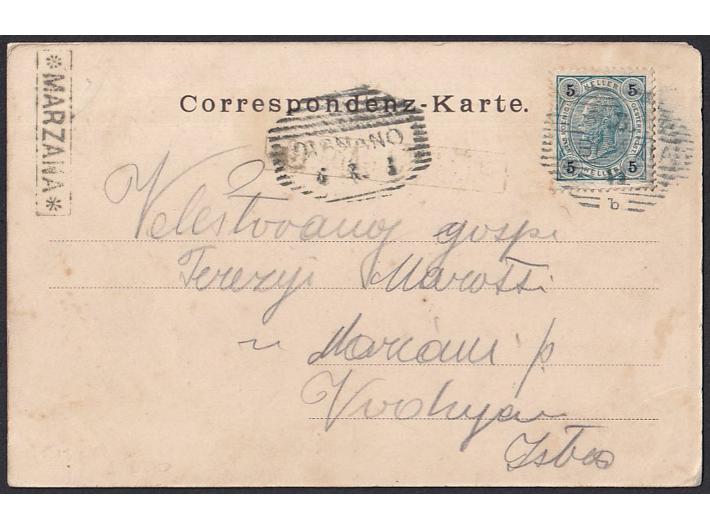 *MARZANA*
Correspondenz-Karte.
5 HELLER 5
5 HELLER 5
DIGNANO
b
Velestovanoj gospi
Terezyi Marotti
u Marčani p.
Vodnjan
Istra